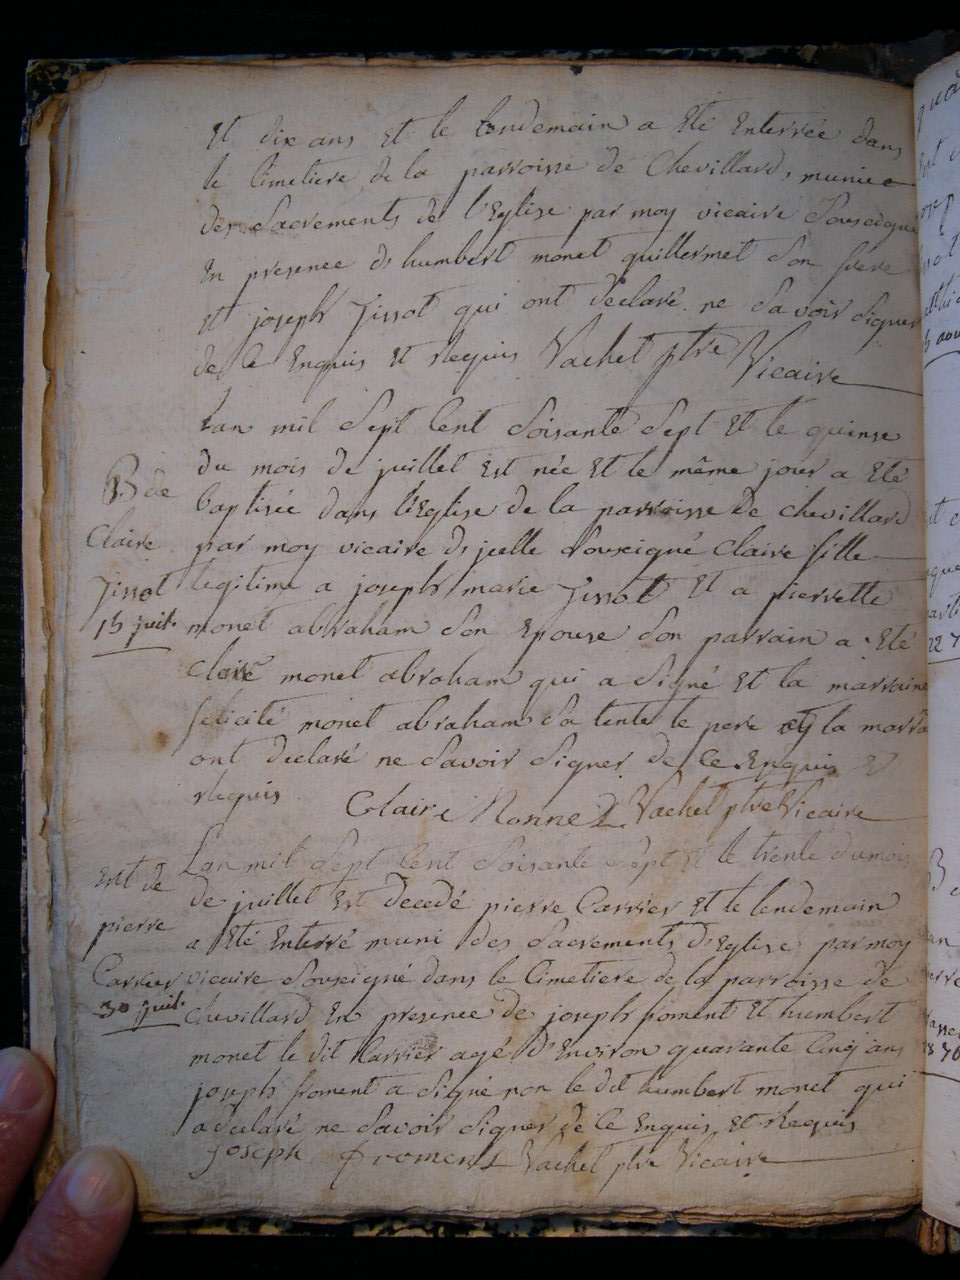 Et dix ans Et le lendemain a Eté Enterrée dans
le Cimetiere de la parroisse de Chevillard, muniee
des Sacrements de l'Eglise par moy vicaire Sousigné
En presence de humbert monet quillermet Son frere
Et joseph Jissot qui ont declaré ne Savoir Signer
de Ce Enquis Et Requis Vachet ptre Vicaire
Lan mil Sept Cent Soisante Sept Et le quinse
du mois de juillet Est née Et le même jour a Eté
baptisée dans l'Eglise de la parroisse de chevillard
par moy vicaire d'jcelle Sousigné Claire fille
legitime a joseph marie Jissot Et a pierrette
monet abraham Son Epouse Son parrain a Eté
Claire monet abraham qui a Signé Et la marraine
felicité monet abraham Sa tente le pere et la marr
ont declaré ne Savoir Signer de Ce Enquis Et
Requis Claire Monnet Vachet ptre Vicaire
B de
Claire
Jissot
15 juil.
Lan mil Sept Cent Soisante Sept Et le trente du mois
de juillet Est decedé pierre Carrier Et le lendemain
a Eté Enterré muni des Sacrements d'Eglise par moy
vicaire Sousigné dans le Cimetiere de la parroisse de
Chevillard En presence de joseph froment Et humbert
monet le dit Carrier agé d'Environ quarante Cinq ans
joseph froment a Signé non le dit humbert monet qui
a declaré ne Savoir Signer de Ce Enquis Et Requis
Joseph froment Vachet ptre Vicaire
Ent de
pierre
Carrier
30 juil.